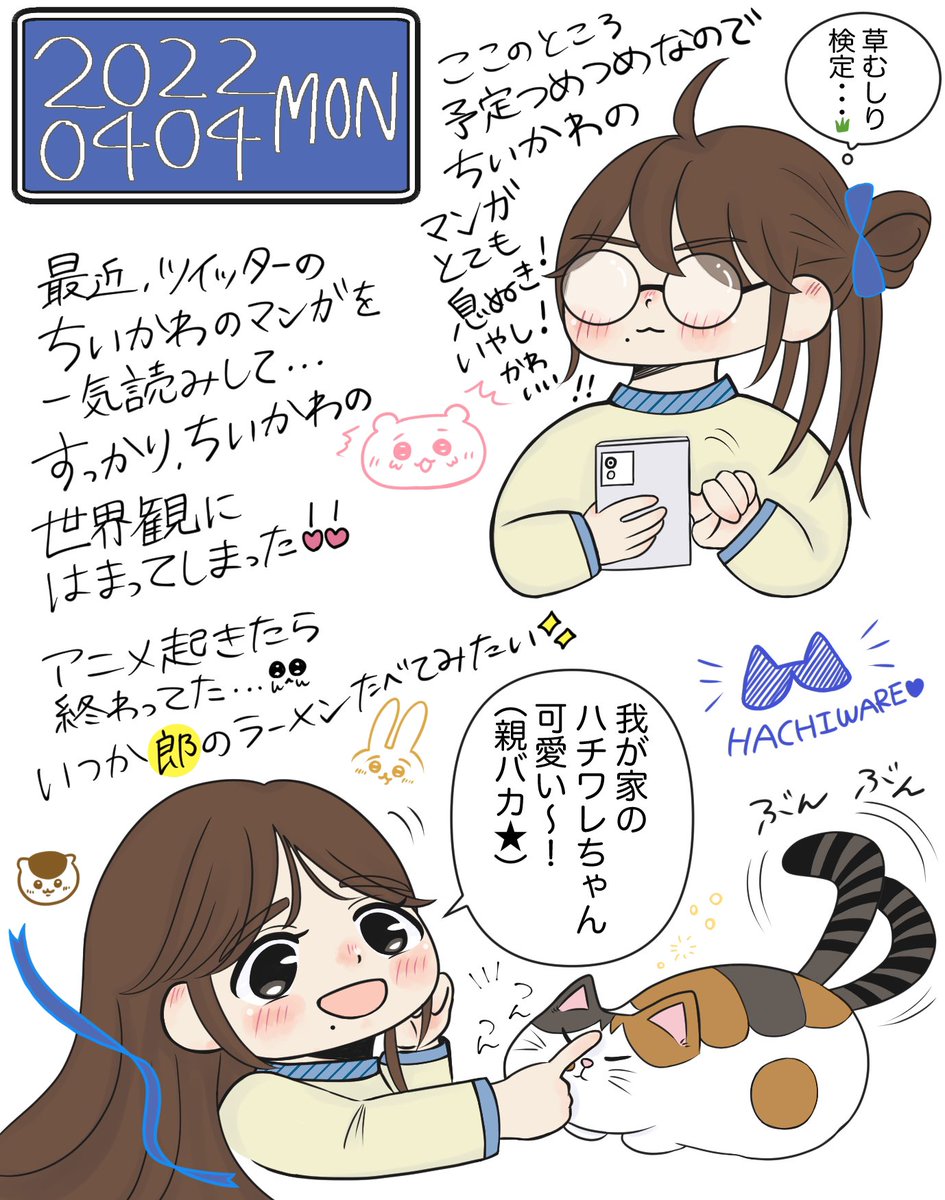 2022
0404
MON
ここのところ
予定つめつめなので
ちいかわの
マンガ
とても
息ぬき!
いやし!
かわ
いい!!
草むしり
検定・・・
最近、ツイッターの
ちいかわのマンガを
一気読みして…
すっかり、ちいかわの
世界観に
はまってしまった!!
アニメ起きたら
終わってた…
いつか郎のラーメンたべてみたい
HACHIWARE
我が家の
ハチワレちゃん
可愛い〜!
(親バカ★)
ぶん ぶん
つん
つん